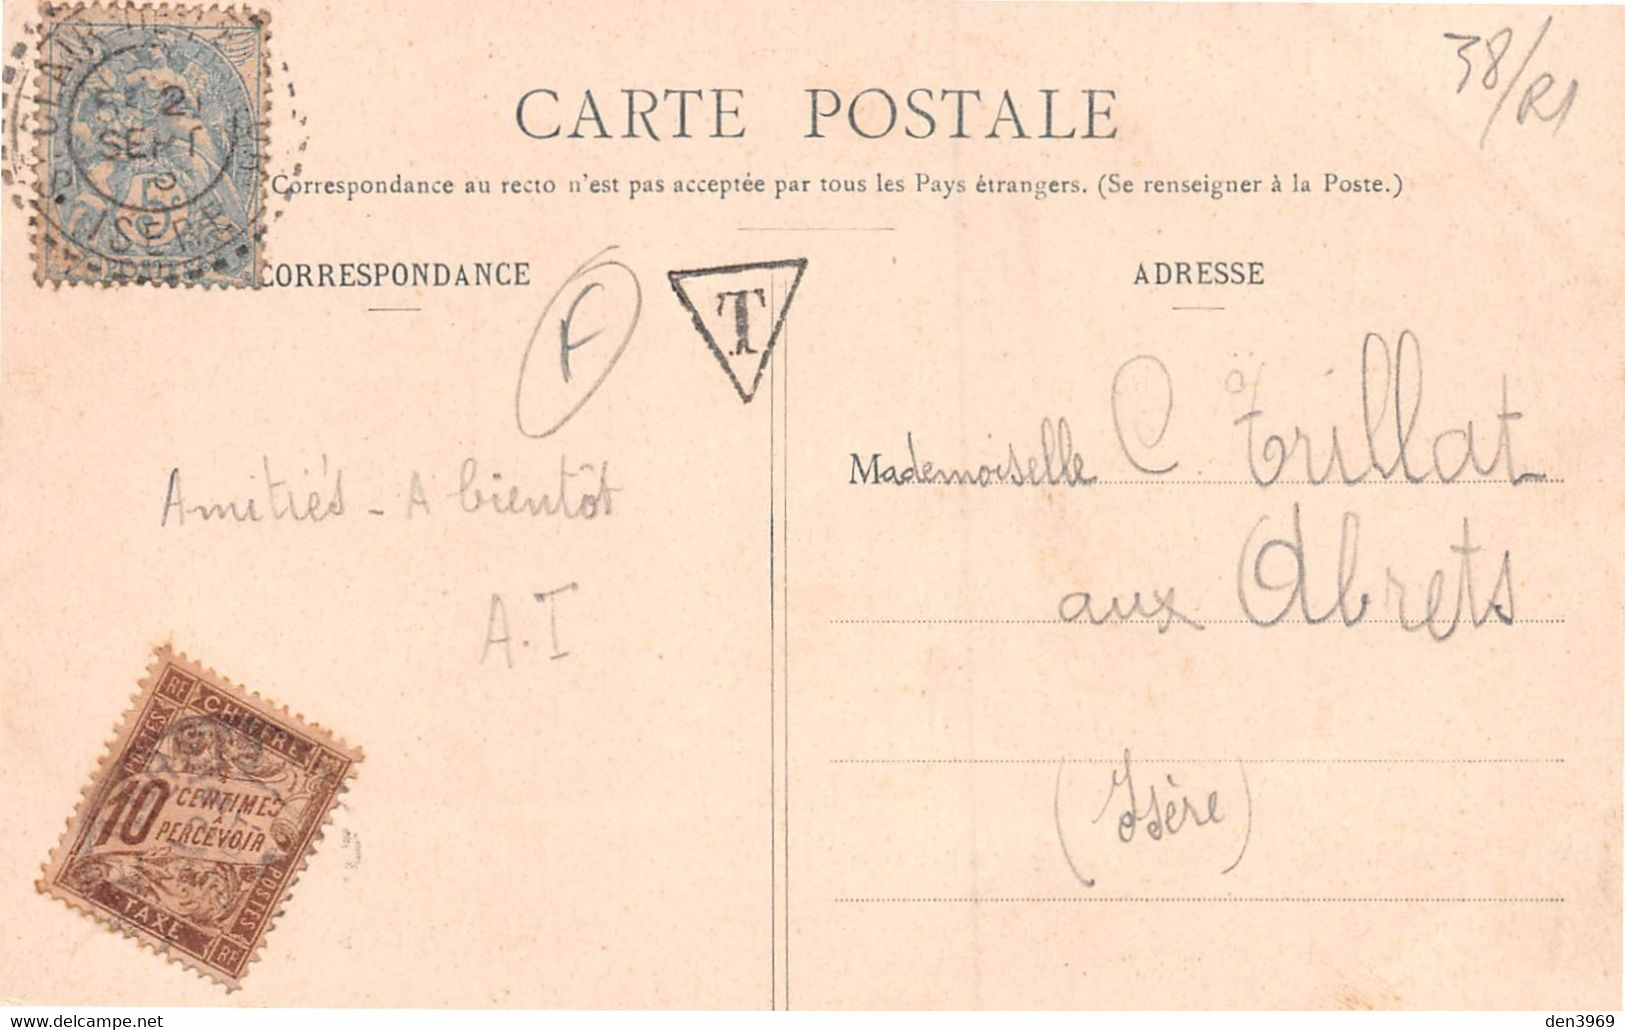 38/R1
CARTE POSTALE
Correspondance au recto n'est pas acceptée par tous les Pays étrangers. (Se renseigner à la Poste.)
CORRESPONDANCE
ADRESSE
ISERE
5
F
T
Mademoiselle C. Trillat
aux Abrets
(Isère)
Amitiés - A bientôt
A.I
RF
CHIFFRE
POSTES
10 CENTIMES
À
PERCEVOIR
POSTES
TAXE
RF
www.delcampe.net
den3969